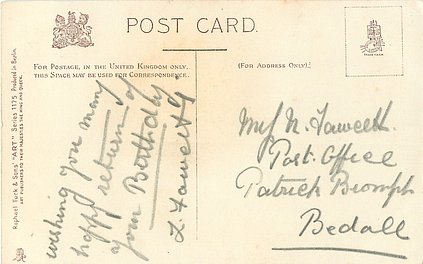 POST CARD.
FOR POSTAGE, IN THE UNITED KINGDOM ONLY,
THIS SPACE MAY BE USED FOR CORRESPONDENCE.
(FOR ADDRESS ONLY).
TRADE MARK
Raphael Tuck & Sons' "ART" Series 1175 Printed in Berlin.
ART PUBLISHERS TO THEIR MAJESTIES THE KING AND QUEEN.
wishing you many
happy returns of
your Birthday
L. Fawcett
N. Fawcett
Post Office
Patrick Brompt
Bedall